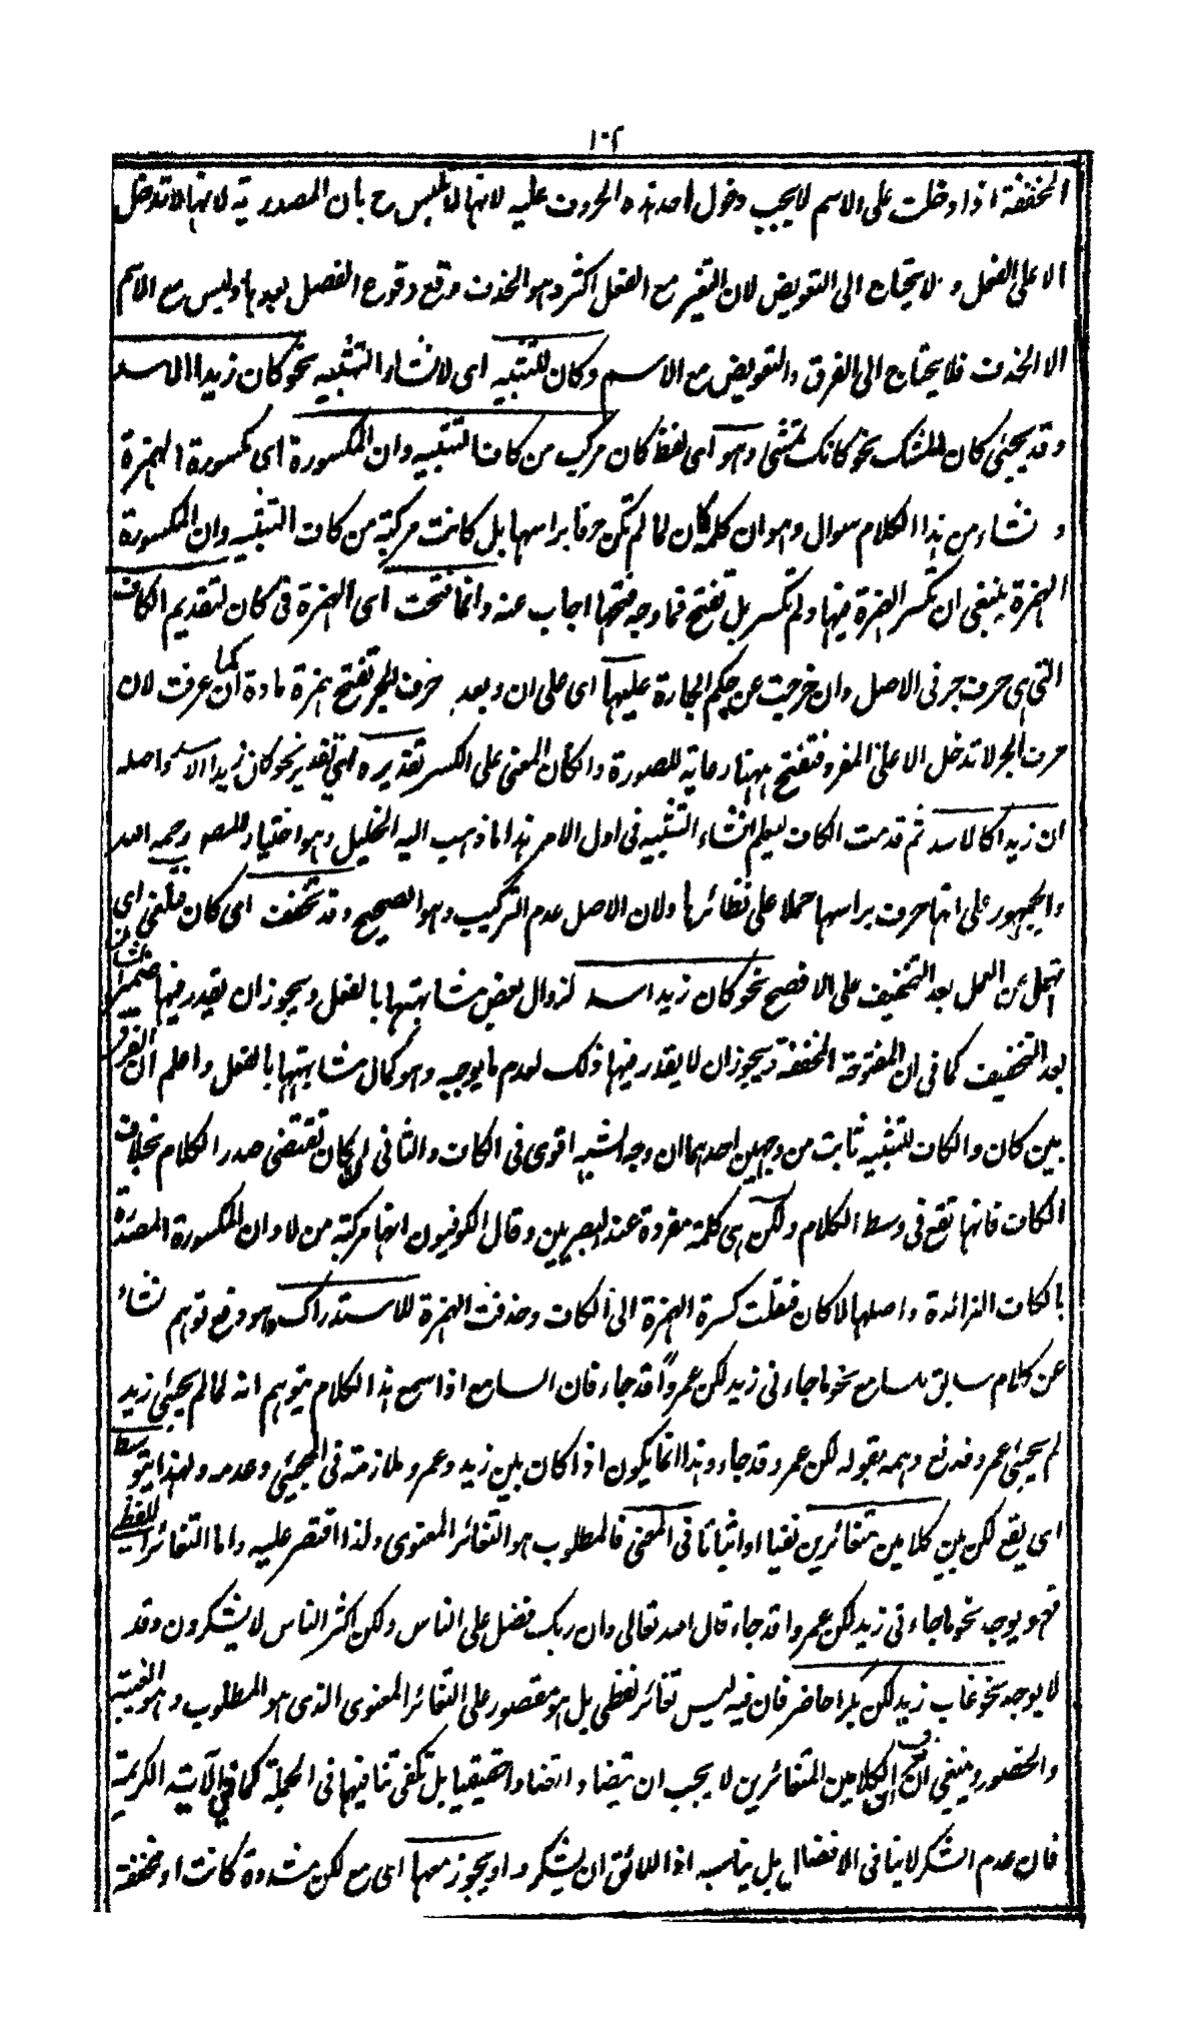 ١٠٢
المخففة اذا دخلت على الاسم لا يجب دخول احد هذه الحروف عليه لانها لا تلبس ح بان المصدرية لانها لا تدخل
الا على الفعل و لا يحتاج الى التعويض لان التغير مع الفعل اكثر وهو الحذف ورفع وقوع الفصل بعدها وليس مع الاسم
الا الحذف فلا يحتاج الى الفرق والتعويض مع الاسم وكان للتشبيه اى لانشاء التشبيه نحو كان زيدا الاسد
وقد يجئ كان للشك نحو كانك تمشى وهو اى لفظ كان مركب من كاف التشبيه وان المكسورة اى مكسورة الهمزة
و نشاء من هذا الكلام سوال وهو ان كلمة كان لما لم تكن حرفا براسها بل كانت مركبة من كاف التشبيه وان المكسورة
الهمزة ينبغى ان تكسر الهمزة فيها ولم تكسر بل تفتح فما وجه فتحها اجاب عنه وانما فتحت اى الهمزة فى كان لتقديم الكاف
التى هى حرف جر فى الاصل وان خرجت عن حكم الجارة عليها اى على ان وبعد حرف الجر تفتح همزة مادة ان كما عرفت لان
حرف الجر لا تدخل الا على المفرد فتفتح ههنا رعاية للصورة وان كان المعنى على الكسر تقديره اى تقدير نحو كان زيدا الاسد واصله
ان زيدا كالاسد ثم قدمت الكاف ليعلم انشاء التشبيه فى اول الامر هذا ما ذهب اليه الخليل وهو اختيار للمصه رحمه الله
والجمهور على انها حرف براسها حملا على نظائرها ولان الاصل عدم التركيب وهو الصحيح وقد تخفف اى كان فتلغى اى
تهمل عن العمل بعد التخفيف على الافصح نحو كان زيد اسد لزوال بعض مشابهتها بالفعل ويجوز ان يقدر فيها ضمير الشان
بعد التخفيف كما فى ان المفتوحة المخففة ويجوز ان لا يقدر فيها ذلك لعدم ما يوجبه وهو كمال مشابهتها بالفعل واعلم ان الفرق
بين كان والكاف للتشبيه ثابت من وجهين احدهما ان وجه الشبه اقوى فى الكاف والثانى ان كان تقتضى صدر الكلام بخلاف
الكاف فانها تقع فى وسط الكلام ولكن هى كلمة مفردة عند البصريين وقال الكوفيون انها مركبة من لا وان المكسورة المصدرة
بالكاف الزائدة واصلها لا كان فنقلت كسرة الهمزة الى الكاف وحذفت الهمزة للاستدراك وهو دفع توهم نشاء
عن كلام سابق للسامع نحو ما جاءنى زيد لكن عمروا قد جاء فان السامع اذا سمع هذا الكلام يتوهم انه لما لم يجئ زيد
لم يجئ عمرو فدفع وهمه بقوله لكن عمر وقد جاء وهذا انما يكون اذا كان بين زيد وعمرو ملازمة فى المجيئ وعدمه ولهذا يتوسط
اى يقع لكن بين كلامين متغائرين نفيا او اثباتا فى المعنى فالمطلوب هو التغائر المعنوى ولذا اقتصر عليه واما التغائر اللفظى
فهو يوجد نحو ما جاءنى زيد لكن عمروا قد جاء قال الله تعالى وان ربك لذو فضل على الناس ولكن اكثر الناس لا يشكرون وقد
لا يوجد نحو غاب زيد لكن بكرا حاضر فان فيه ليس تغائر لفظى بل هو مقصور على التغائر المعنوى الذى هو المطلوب وهو الغيبة
والحضور وينبغى ان الكلامين المتغائرين لا يجب ان يتضادا تضادا حقيقيا بل تكفى تنافيهما فى الجملة كما فى الآية الكريمة
فان عدم الشكر لا ينافى الافضال بل يناسبه اذ اللائق ان يشكروا ويجوز معها اى مع لكن مشددة كانت او مخففة